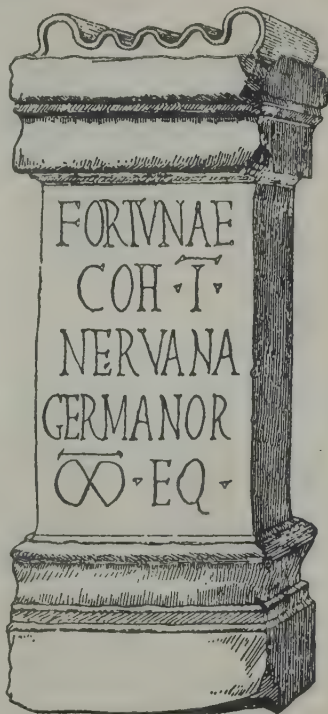 FORTVNAE
COH · Ī ·
NERVANA
GERMANOR
ↀ · EQ ·